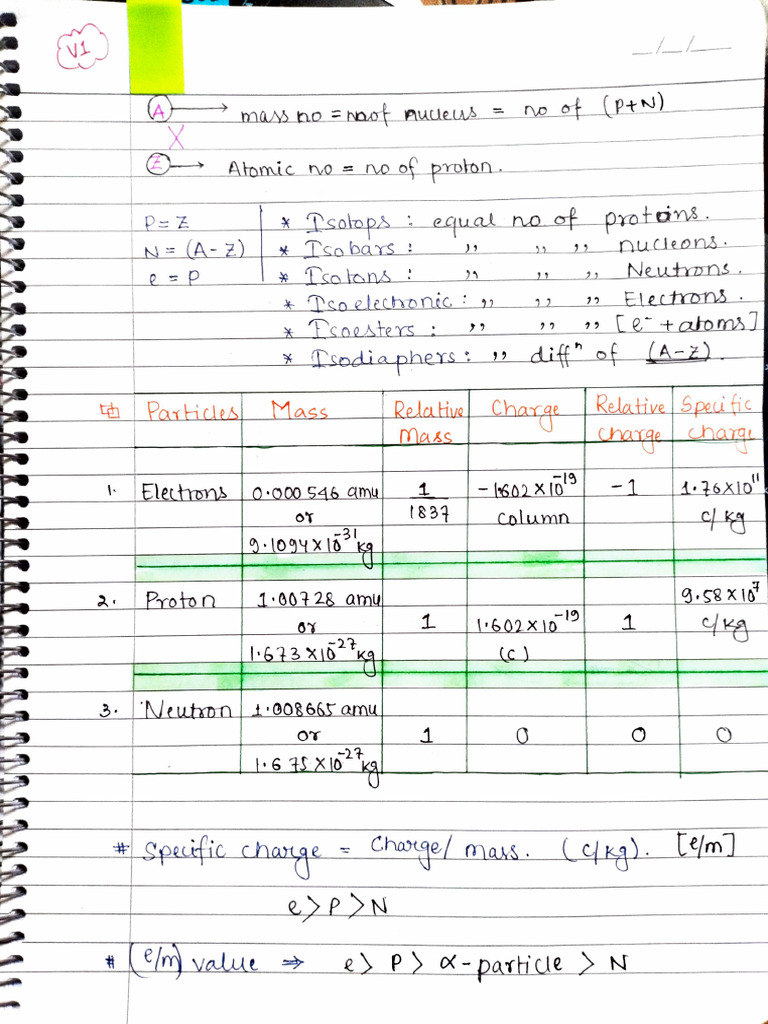 V1
__/__/__
A → mass no = no of nucleus = no of (P+N)
X
Z → Atomic no = no of proton.
P = Z
N = (A-Z)
e = P
* Isotops : equal no of protoins.
* Isobars : ,, ,, ,, nucleons.
* Isotons : ,, ,, ,, Neutrons.
* Isoelectronic : ,, ,, ,, Electrons.
* Isoesters : ,, ,, ,, [e⁻ + atoms]
* Isodiaphers : ,, diffⁿ of (A-Z).
Particles Mass Relative Mass Charge Relative charge Specific charge
1. Electrons 0.000546 amu or 9.1094×10⁻³¹ kg 1/1837 -1.602×10⁻¹⁹ column -1 1.76×10¹¹ c/kg
2. Proton 1.00728 amu or 1.673×10⁻²⁷ kg 1 1.602×10⁻¹⁹ (c) 1 9.58×10⁷ c/kg
3. Neutron 1.008665 amu or 1.675×10⁻²⁷ kg 1 0 0 0
# Specific charge = Charge/ mass. (c/kg). [e/m]
e > P > N
# (e/m) value ⇒ e > P > α-particle > N